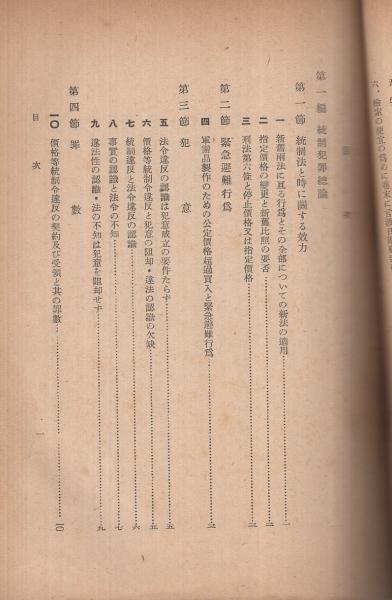 六、檢索の便宜の爲めに卷末に
目次
第一編 統制犯罪總論
第一節 統制法と時に關する效力
一 新舊兩法に亙る行爲とその全部についての新法の適用……一
二 指定價格の變更と新舊比照の要否……二
三 刑法第六條と停止價格又は指定價格……二
第二節 緊急避難行爲
四 軍需品製作のための公定價格超過買入と緊急避難行爲……三
第三節 犯意
五 法令違反の認識は犯意成立の要件たらず……五
六 價格等統制令違反と犯意の阻却・違法の認識の欠缺……五
七 統制違反と法令違反の認識……六
八 事實の認識と法令の不知……七
九 違法性の認識・法の不知は犯意を阻却せず……九
第四節 罪數
一〇 價格等統制令違反の契約及び受領と其の罪數……一〇
目次
一